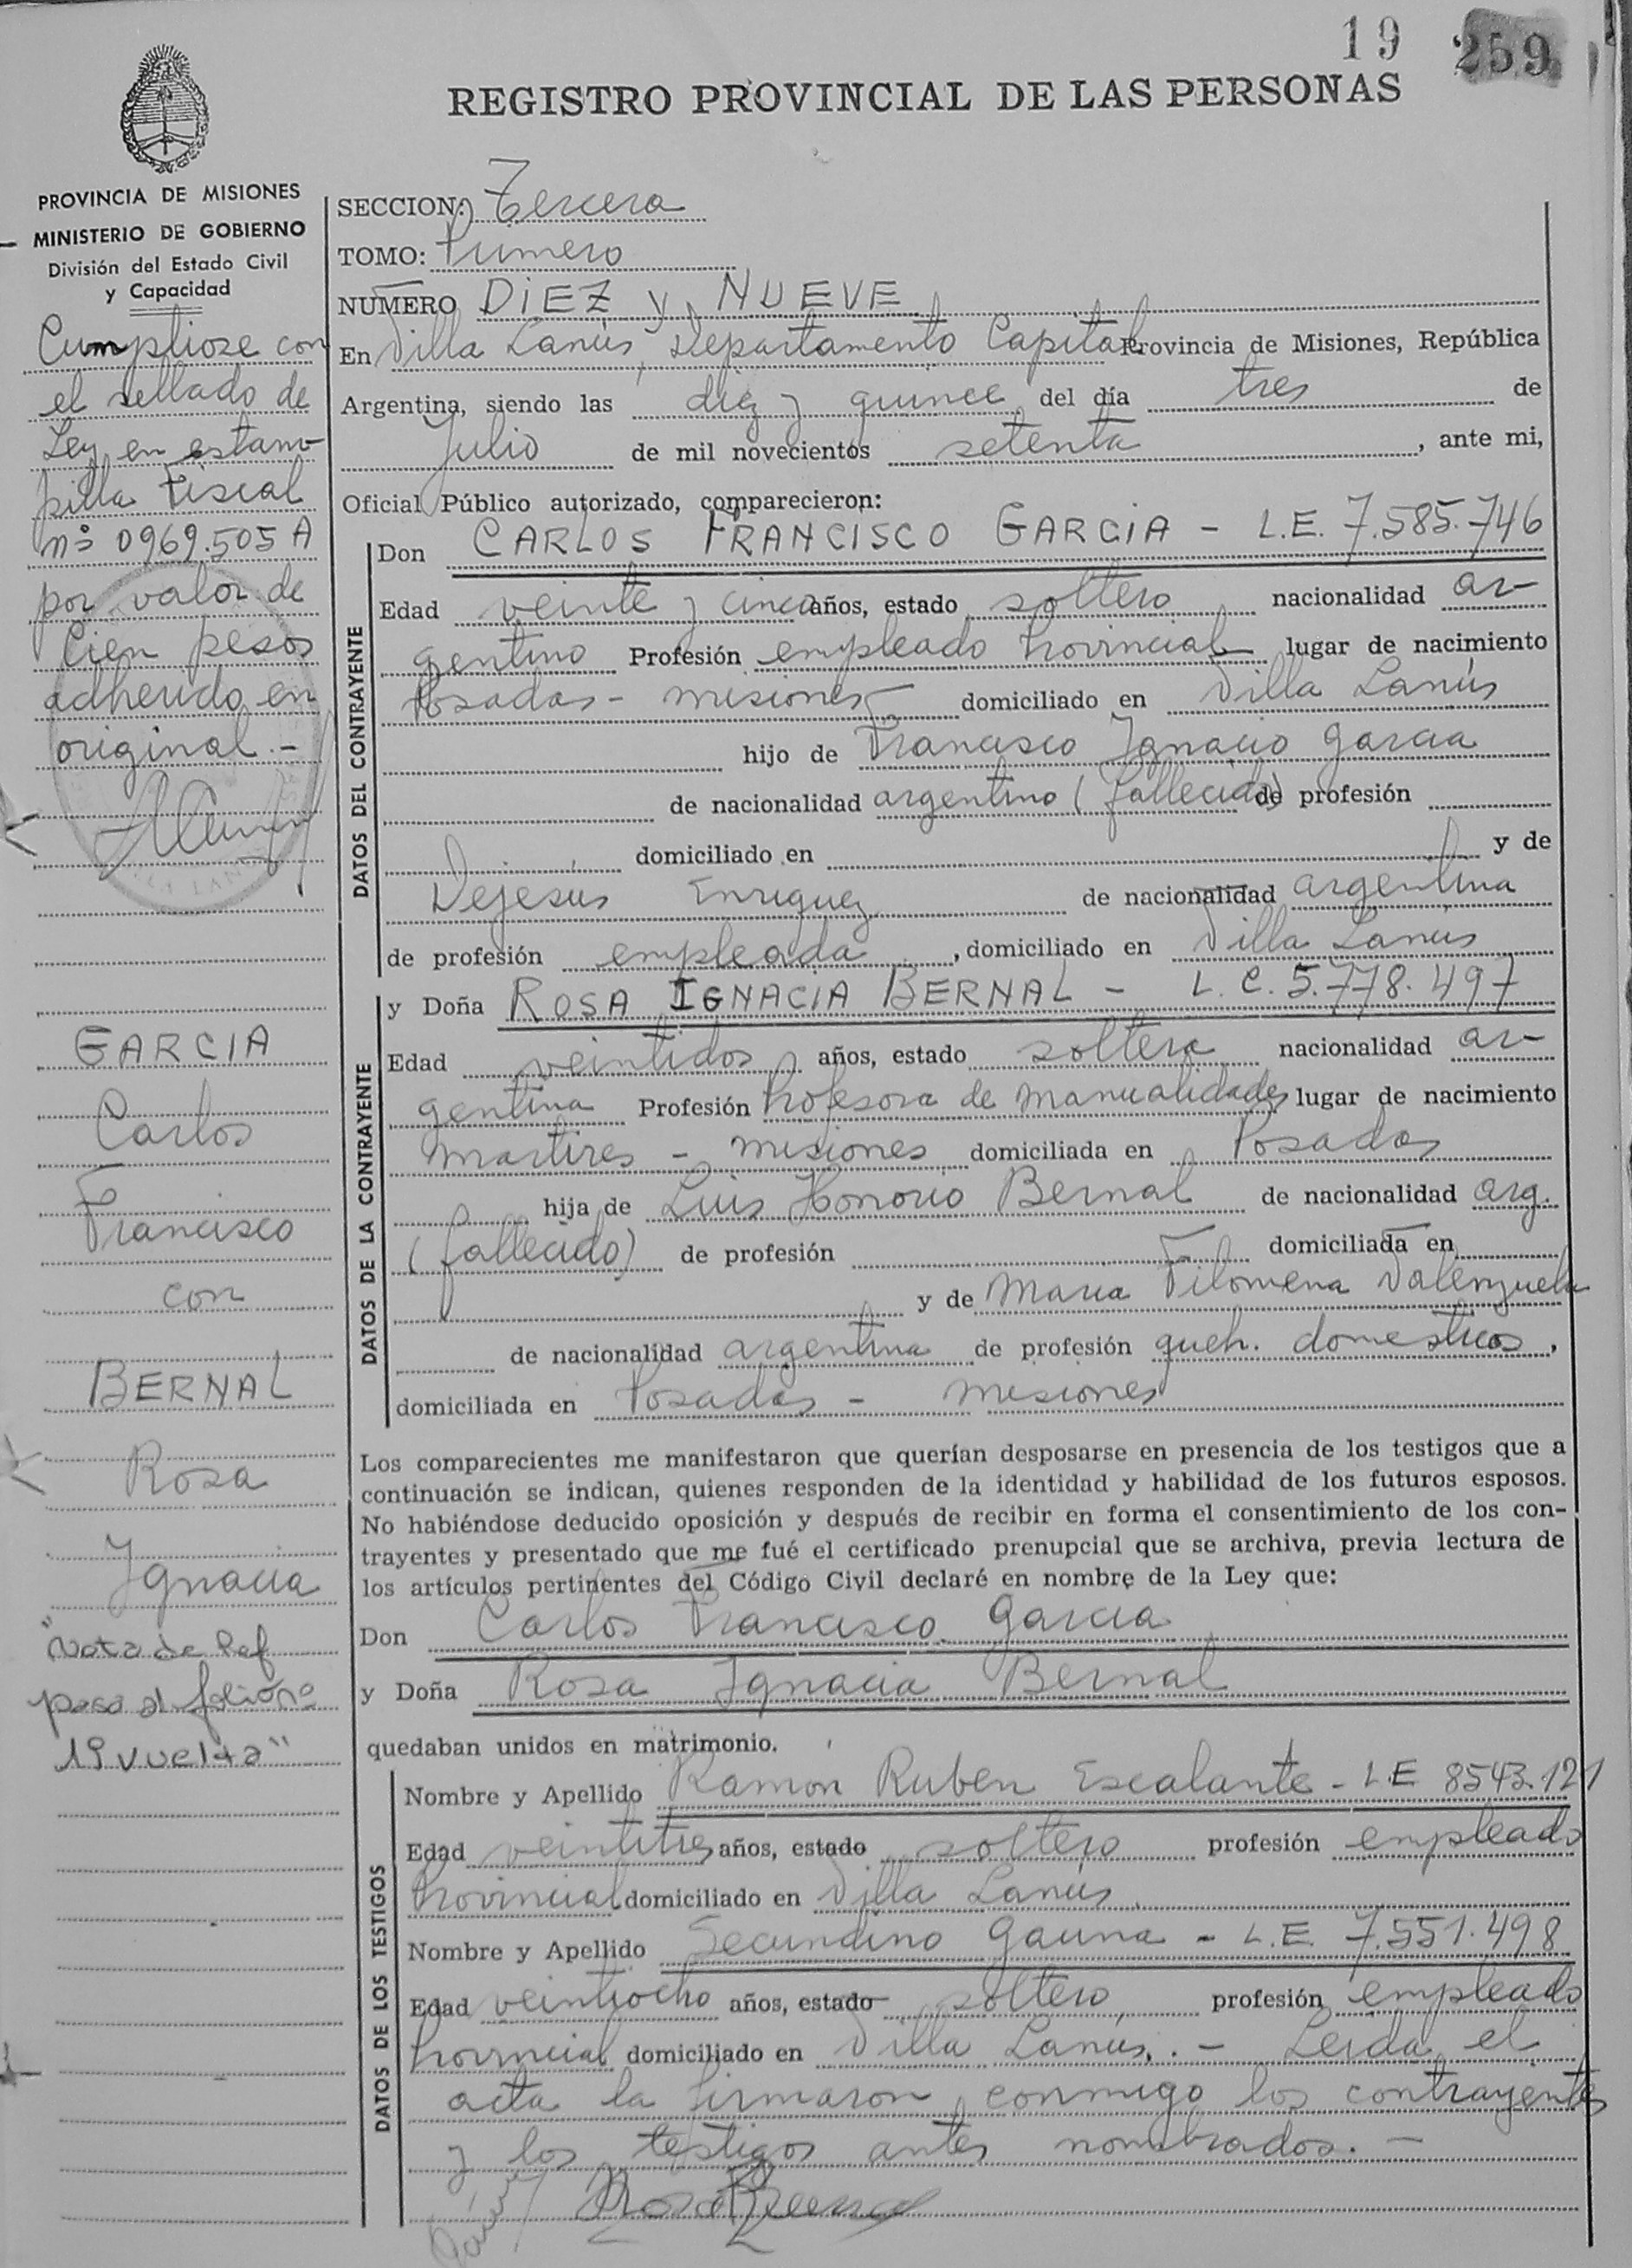 19 259
REGISTRO PROVINCIAL DE LAS PERSONAS
PROVINCIA DE MISIONES
MINISTERIO DE GOBIERNO
División del Estado Civil
y Capacidad
Cumpliose con
el sellado de
Ley en estam-
pilla Fiscal
nº 0969.505 A
por valor de
Cien pesos
adherido en
original.-
GARCIA
Carlos
Francisco
con
BERNAL
Rosa
Ignacia
"Nota de Ref
pasa al folio nº
19 vuelta"
SECCION: Tercera
TOMO: Primero
NUMERO DIEZ y NUEVE
En Villa Lanús, Departamento Capital Provincia de Misiones, República
Argentina, siendo las diez y quince del día tres de
Julio de mil novecientos setenta, ante mi,
Oficial Público autorizado, comparecieron:
DATOS DEL CONTRAYENTE
Don CARLOS FRANCISCO GARCIA - L.E. 7.585.746
Edad veinte y cinco años, estado soltero nacionalidad ar-
gentino Profesión empleado Provincial lugar de nacimiento
Posadas - misiones domiciliado en Villa Lanús
hijo de Francisco Ignacio Garcia
de nacionalidad argentino (fallecido) de profesión
domiciliado en y de
Dejesús Enriquez de nacionalidad argentina
de profesión empleada, domiciliado en Villa Lanús
DATOS DE LA CONTRAYENTE
y Doña ROSA IGNACIA BERNAL - L.C. 5.778.497
Edad veintidos años, estado soltera nacionalidad ar-
gentina Profesión Profesora de Manualidades lugar de nacimiento
Martires - misiones domiciliada en Posadas
hija de Luis Honorio Bernal de nacionalidad arg.
(fallecido) de profesión domiciliada en
y de Maria Filomena Valenzuela
de nacionalidad argentina de profesión queh. domesticos,
domiciliada en Posadas - misiones
Los comparecientes me manifestaron que querían desposarse en presencia de los testigos que a
continuación se indican, quienes responden de la identidad y habilidad de los futuros esposos.
No habiéndose deducido oposición y después de recibir en forma el consentimiento de los con-
trayentes y presentado que me fué el certificado prenupcial que se archiva, previa lectura de
los artículos pertinentes del Código Civil declaré en nombre de la Ley que:
Don Carlos Francisco Garcia
y Doña Rosa Ignacia Bernal
quedaban unidos en matrimonio.
DATOS DE LOS TESTIGOS
Nombre y Apellido Ramon Ruben Escalante - L.E 8543.121
Edad veintitres años, estado soltero profesión empleado
Provincial domiciliado en Villa Lanús
Nombre y Apellido Secundino Gauna - L.E. 7.551.498
Edad veintiocho años, estado soltero profesión empleado
Provincial domiciliado en Villa Lanús. - Leida el
acta la firmaron conmigo los contrayentes
y los testigos antes nombrados. -
Rosa Bernal